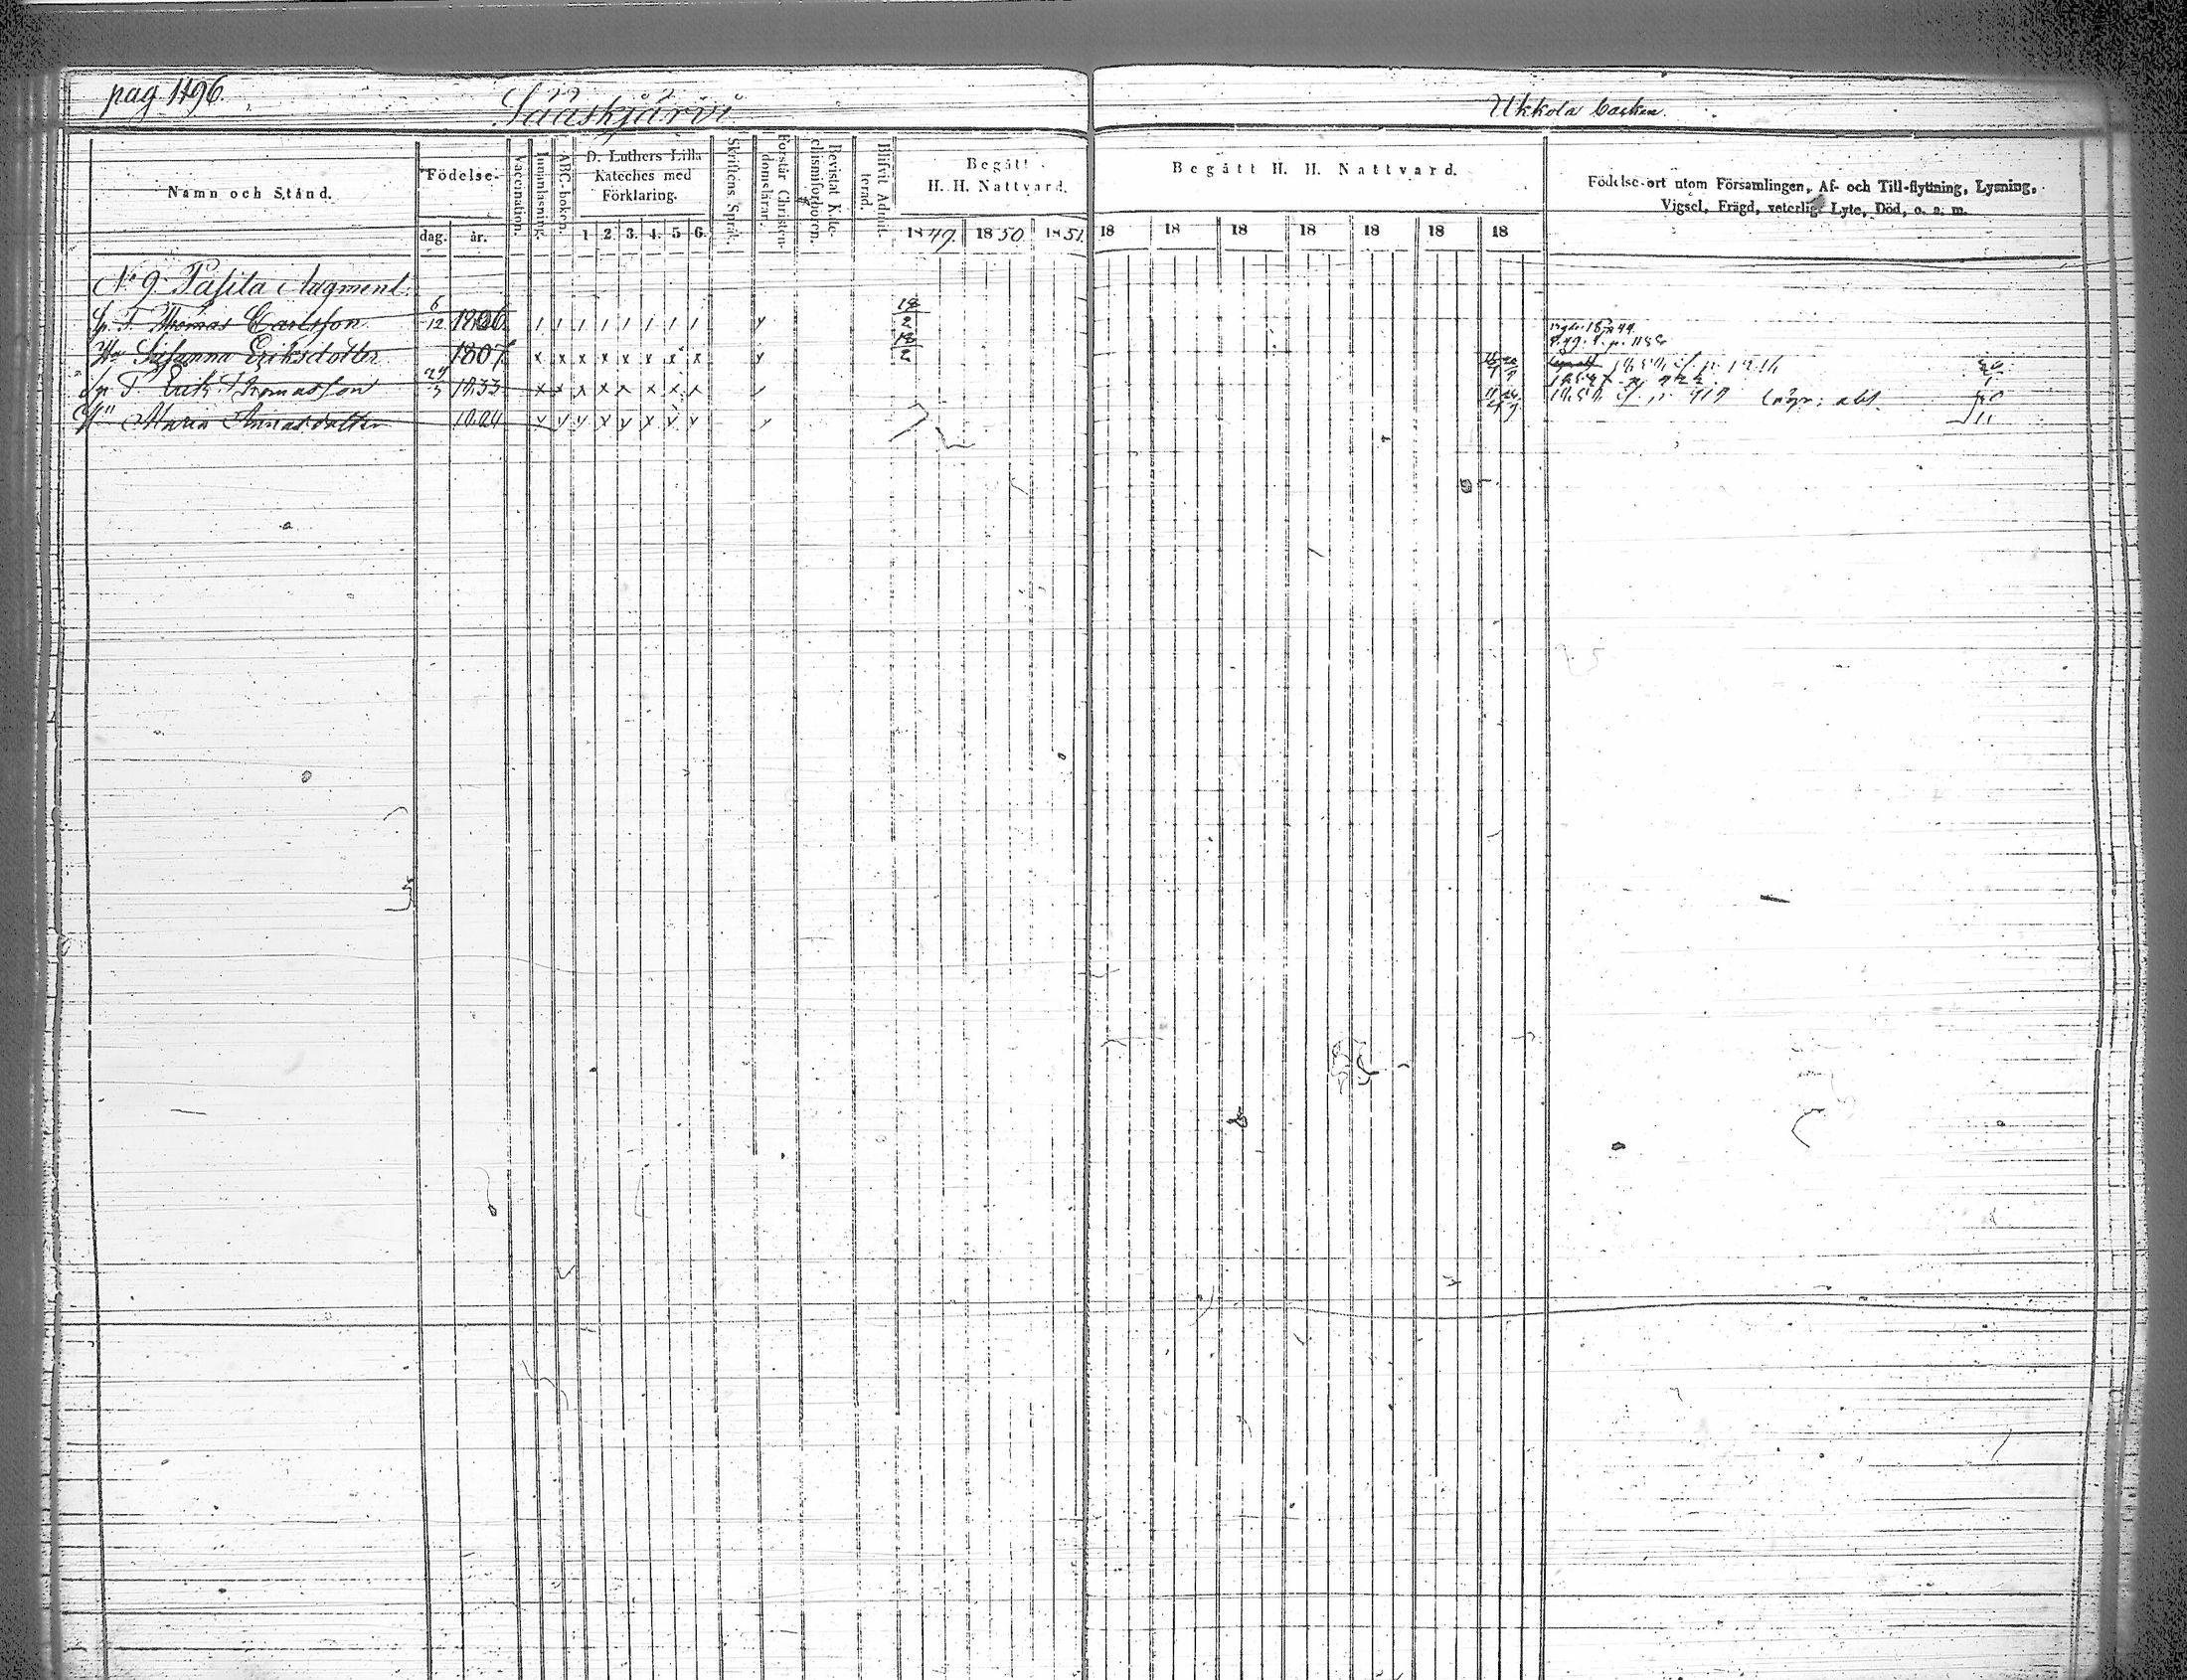 pag. 1196.
Sääskjärvi
Ukkola backen.
Namn och Stånd.
Födelse-
dag. år.
Vaccination.
Innanläsning.
ABC-boken.
D. Luthers Lilla Kateches med Förklaring.
1 2. 3. 4. 5 6.
Skriftens Språk.
Förstår Christendomslärar.
Bevistat Katechismiförhören.
Blifvit Admitterad.
Begått H. H. Nattvard.
1849. 1850. 1851.
Begått H. H. Nattvard.
18 18 18 18 18 18 18
Födelse-ort utom Församlingen, Af- och Till-flyttning, Lysning,
Vigsel, Frägd, veterligt Lyte, Död, o. a. m.
No 9 Pasila Augment.
Sp. T. Thomas Carlsson 6/12 1806 / / / / / / / / y 18/2
Hu Susanna Eriksdotter 1807 x x x x x x x x y 18/2
Sp T Erik Thomasson 24/3 1833 x x x x x x x x y
Hu Maria Annasdotter 1824 y y y x y x y y y